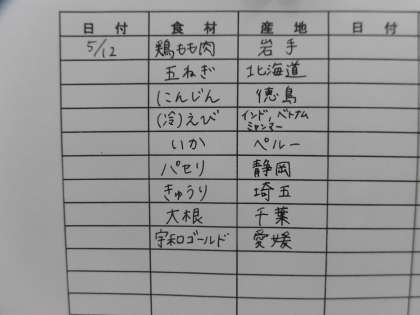 日 付 食 材 産 地 日 付
5/12 鶏もも肉 岩手
玉ねぎ 北海道
にんじん 徳島
(冷)えび インド,ベトナム
ミャンマー
いか ペルー
パセリ 静岡
きゅうり 埼玉
大根 千葉
宇和ゴールド 愛媛